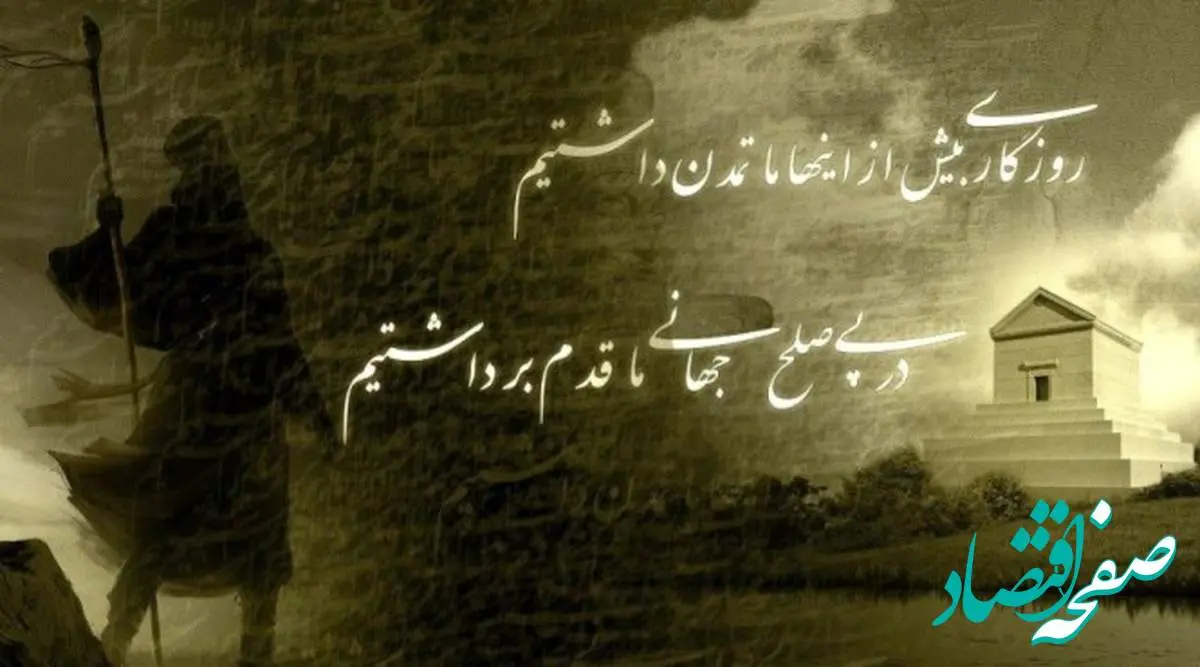 روزگاری بیش از اینها ما تمدن داشتیم
در پی صلح جهانی ما قدم برداشتیم
صفحه اقتصاد